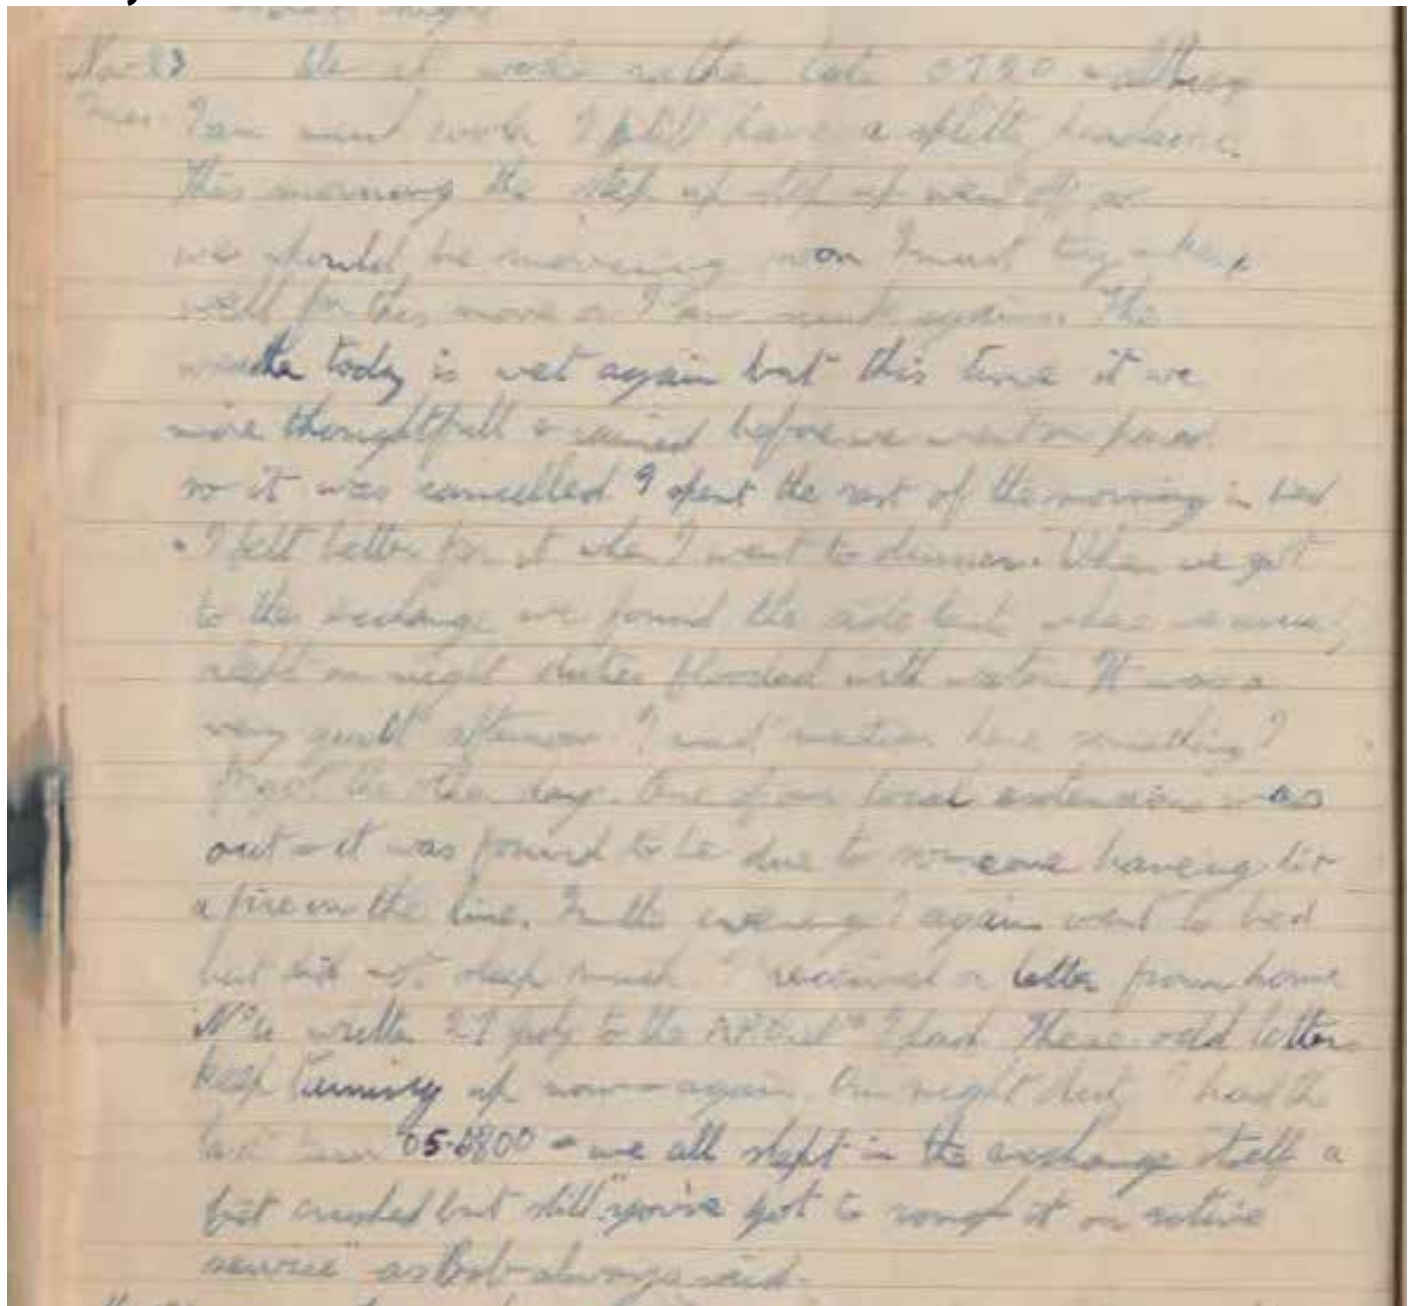 Nov 23 We at work rather late 0720 - although
Tues. I am much work I still have a splitting headache.
This morning the step up step up went off so
we should be moving soon I must try & keep
well for this move or I am sunk again. The
weather today is wet again but this time it we
more thoughtfull & rained before we went on parade
so it was cancelled I spent the rest of the morning in bed
& I felt better for it when I went to dinner. When we got
to the exchange we found the side tent where we usually
slept on night duties flooded with water. It was a
very quiet afternoon I must mention here something I
forgot the other day. One of our local extensions was
out & it was found to be due to someone having lit
a fire on the line. In the evening I again went to bed
but did not sleep much I received a letter from home
No written 27 July to the These odd letters
keep turning up now & again. On night duty I had the
last 05-0800 - we all slept in the exchange itself a
bit crushed but still "you've got to rough it on active
service" as Bob always said.